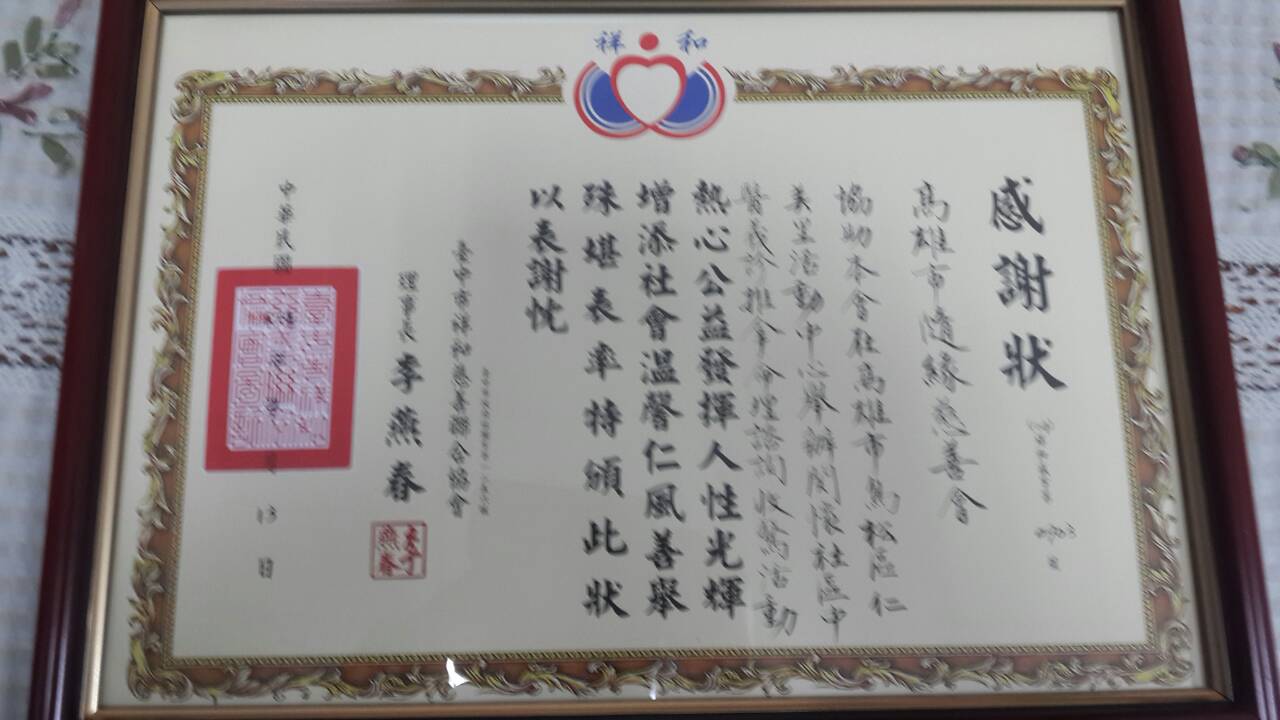 祥和
感謝狀
高雄市隨緣慈善會
協助本會在高雄市鳥松區仁
美里活動中心舉辦關懷社區中
醫義診推拿命理諮詢收驚活動
熱心公益發揮人性光輝
增添社會溫馨仁風善舉
殊堪表率特頒此狀
以表謝忱
臺中市祥和慈善聯合協會
理事長 李燕春
李燕春
中華民國
13 日